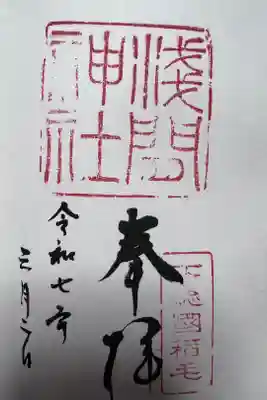 浅間
神社
奉拝
下総國稲毛
令和七年
三月二日